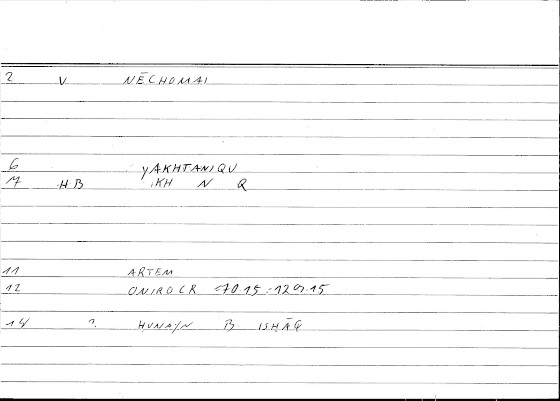 2 V NĒCHOMAI
6 yAKHTANIQU
7 H B IKH N Q
11 ARTEM
12 ONIROCR 70.15 = 129.15
14 ? HUNAYN B ISHĀQ